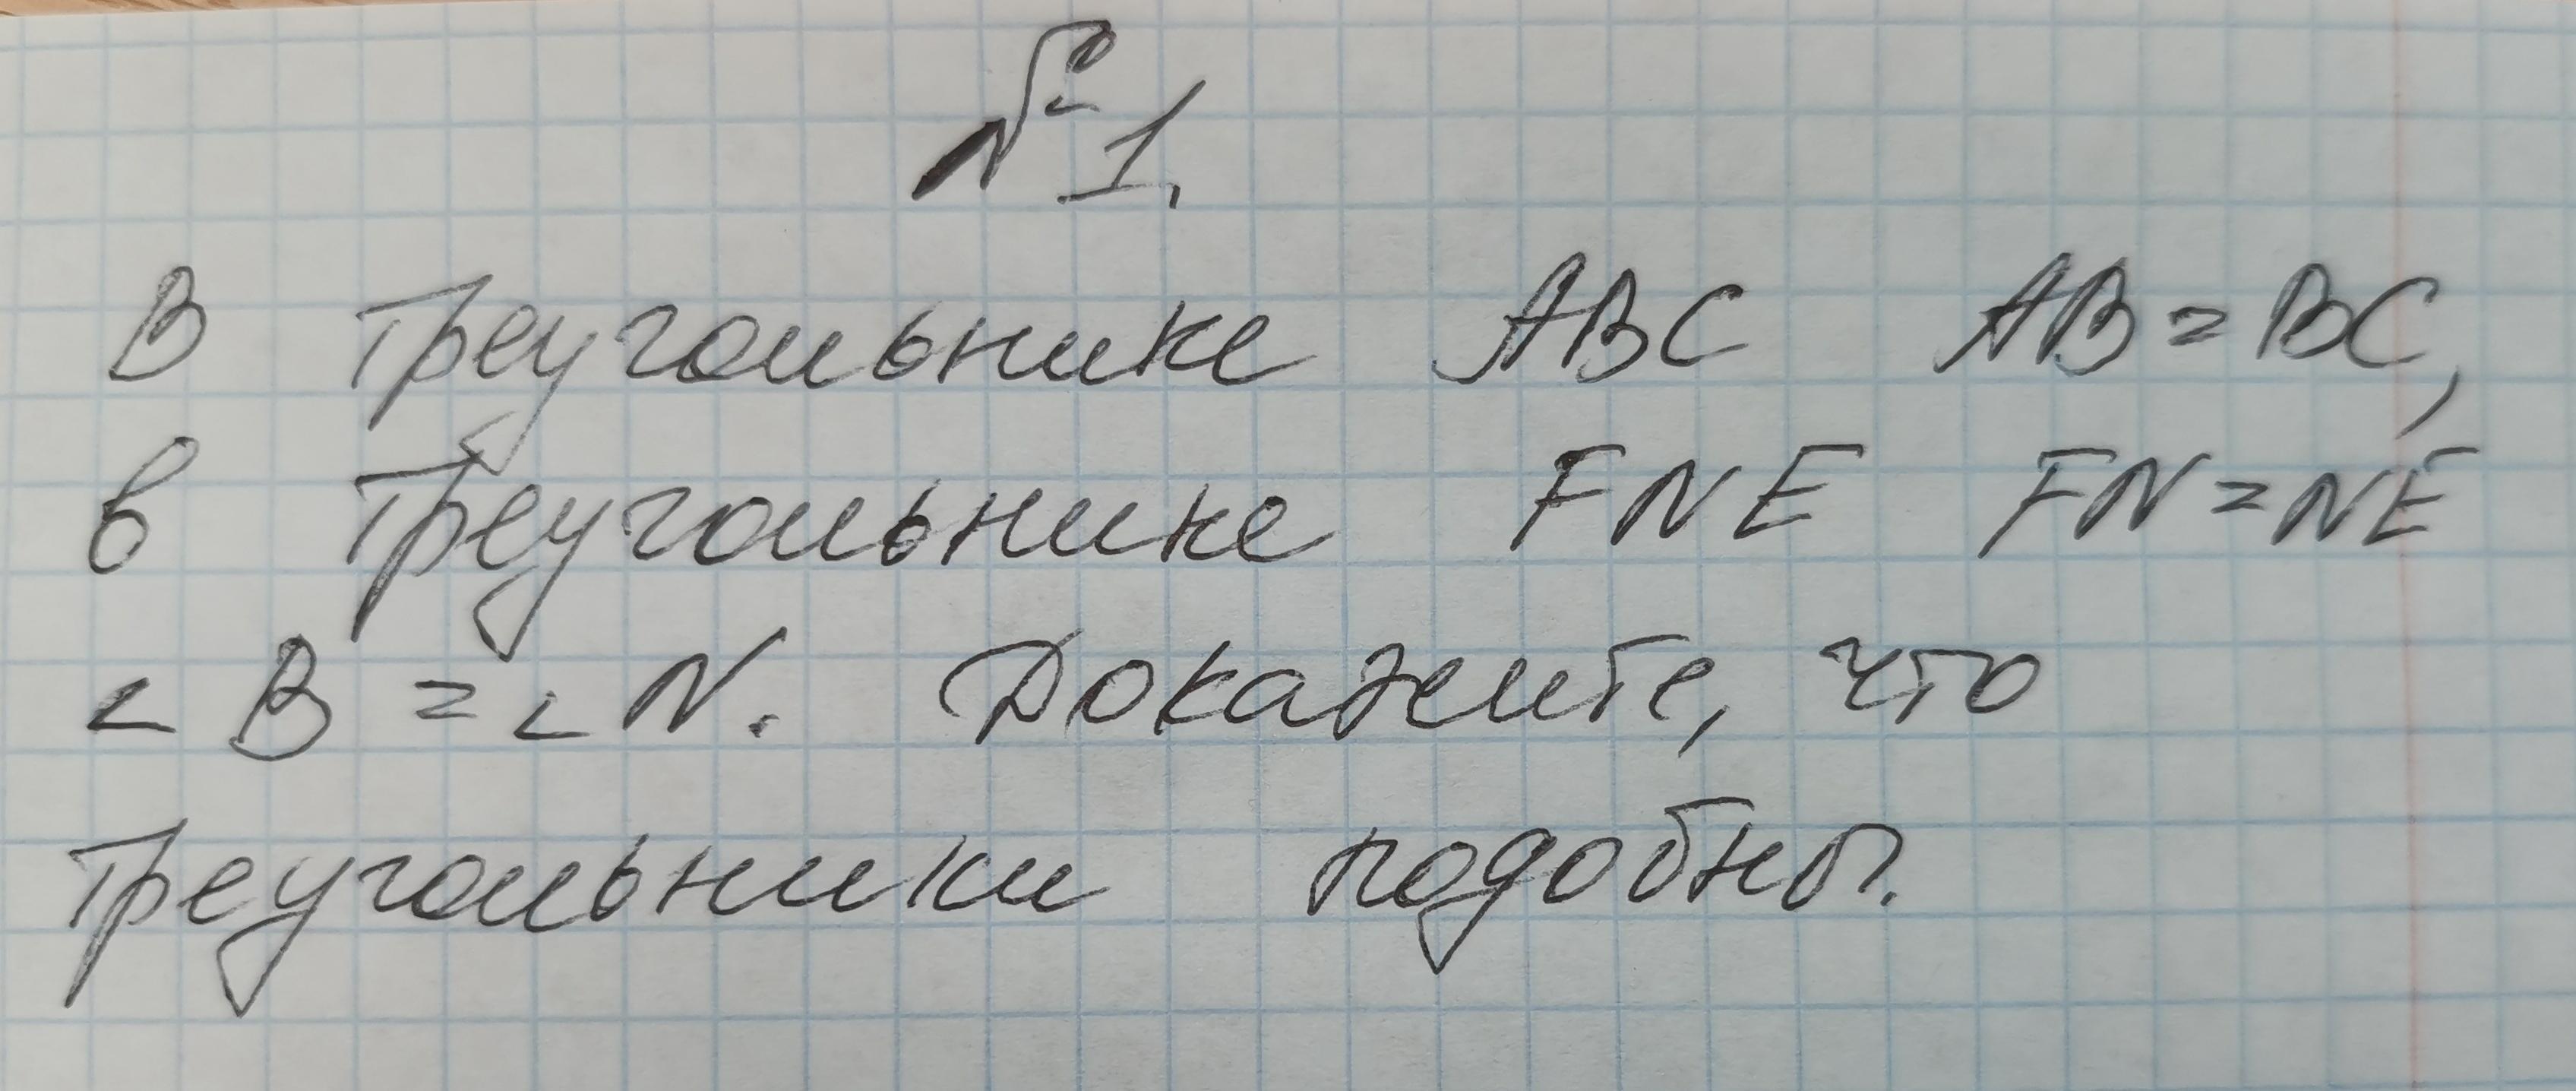 №1.
В треугольнике ABC AB=BC,
в треугольнике FNE FN=NE
<B=<N. Докажите, что
треугольники подобны.